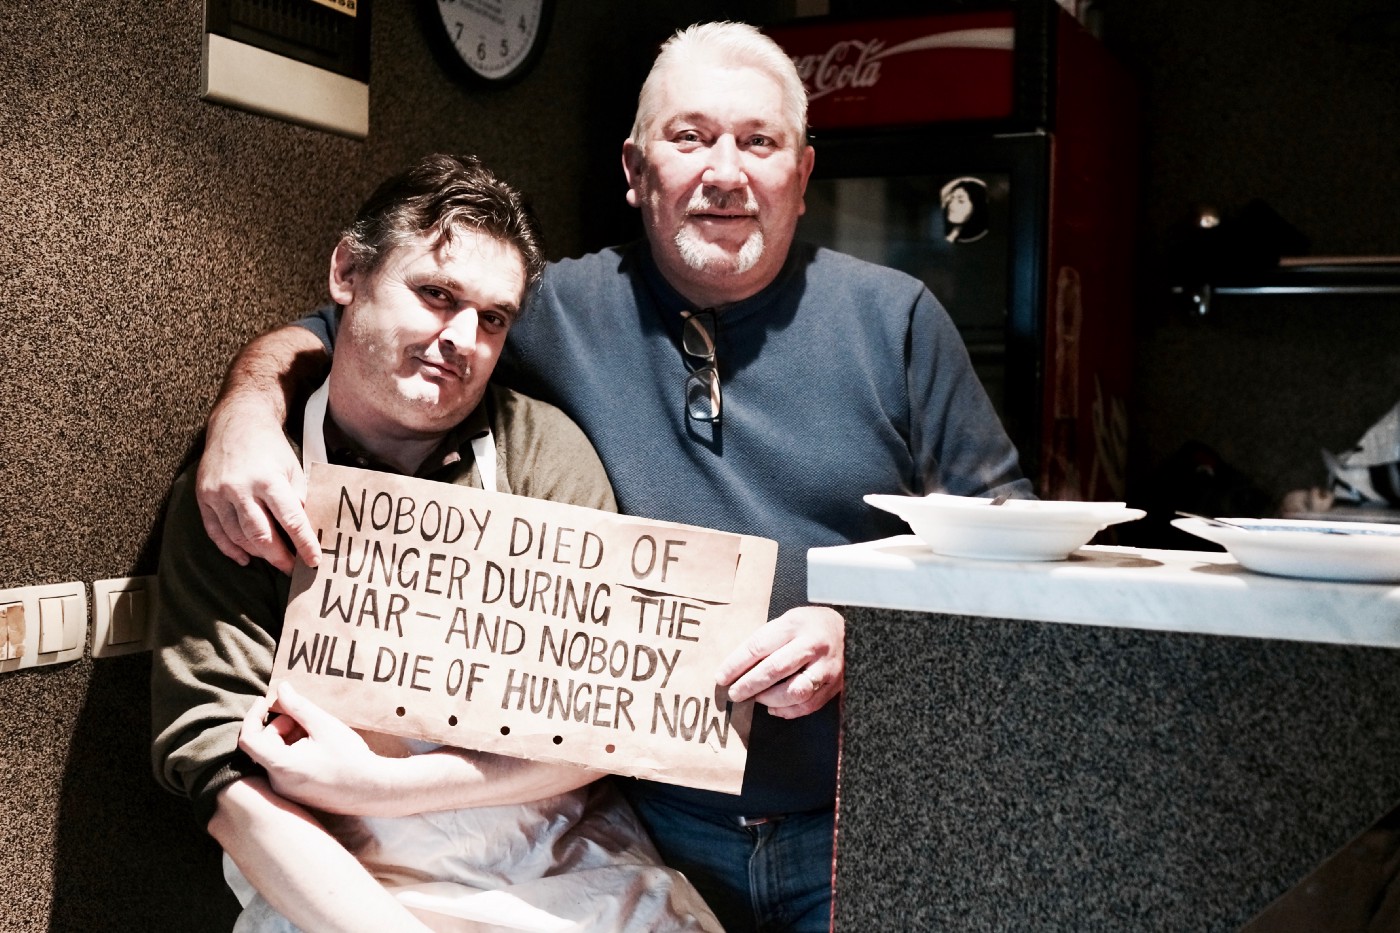 7 6 5 4
Coca-Cola
NOBODY DIED OF
HUNGER DURING THE
WAR—AND NOBODY
WILL DIE OF HUNGER NOW